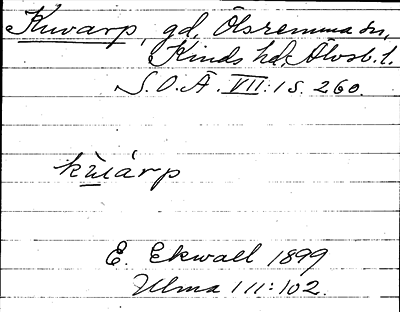 Kuvarp, gd, Ölsremma sn,
Kinds hd, Älvsb. l.
S.O.Ä. VII:1 s. 260.
E. Ekwall 1899
Ulma 111:102.